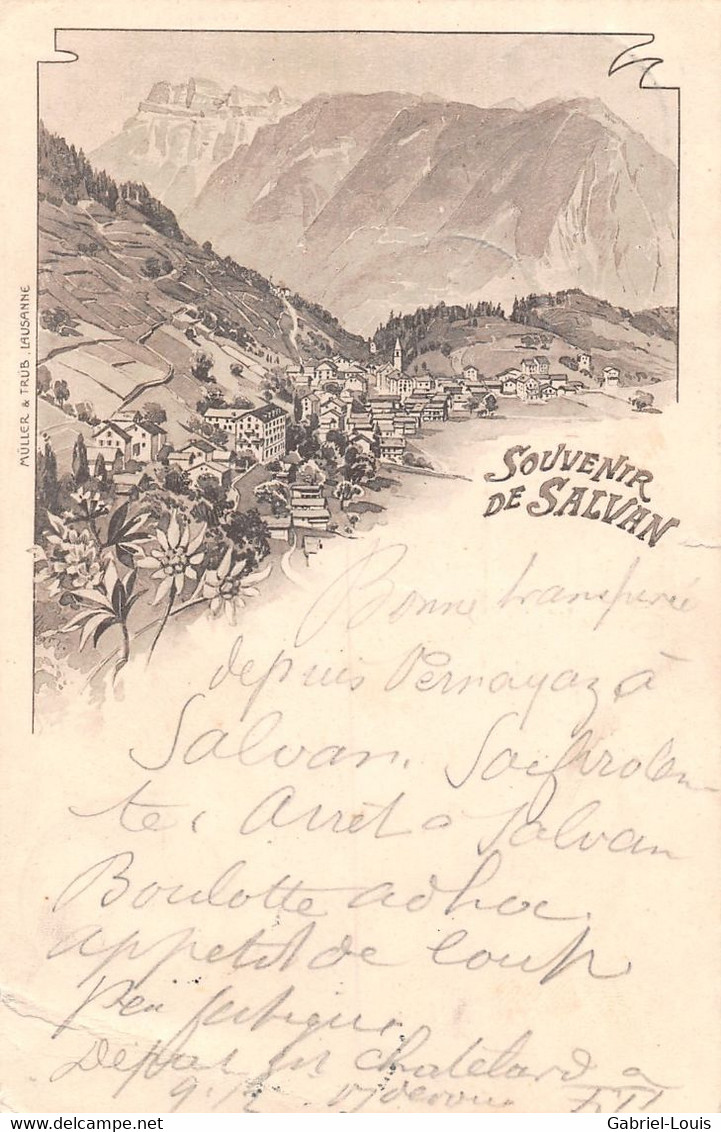 MÜLLER & TRÜB, LAUSANNE
SOUVENIR
DE SALVAN
Bonne transpirée
depuis Vernayaz à
Salvan.
te, Arrêt à Salvan
Boulotte ad hoc.
appetit de loup
Peu fatigué
Départ pr chatelard a
9.½
Gabriel-Louis